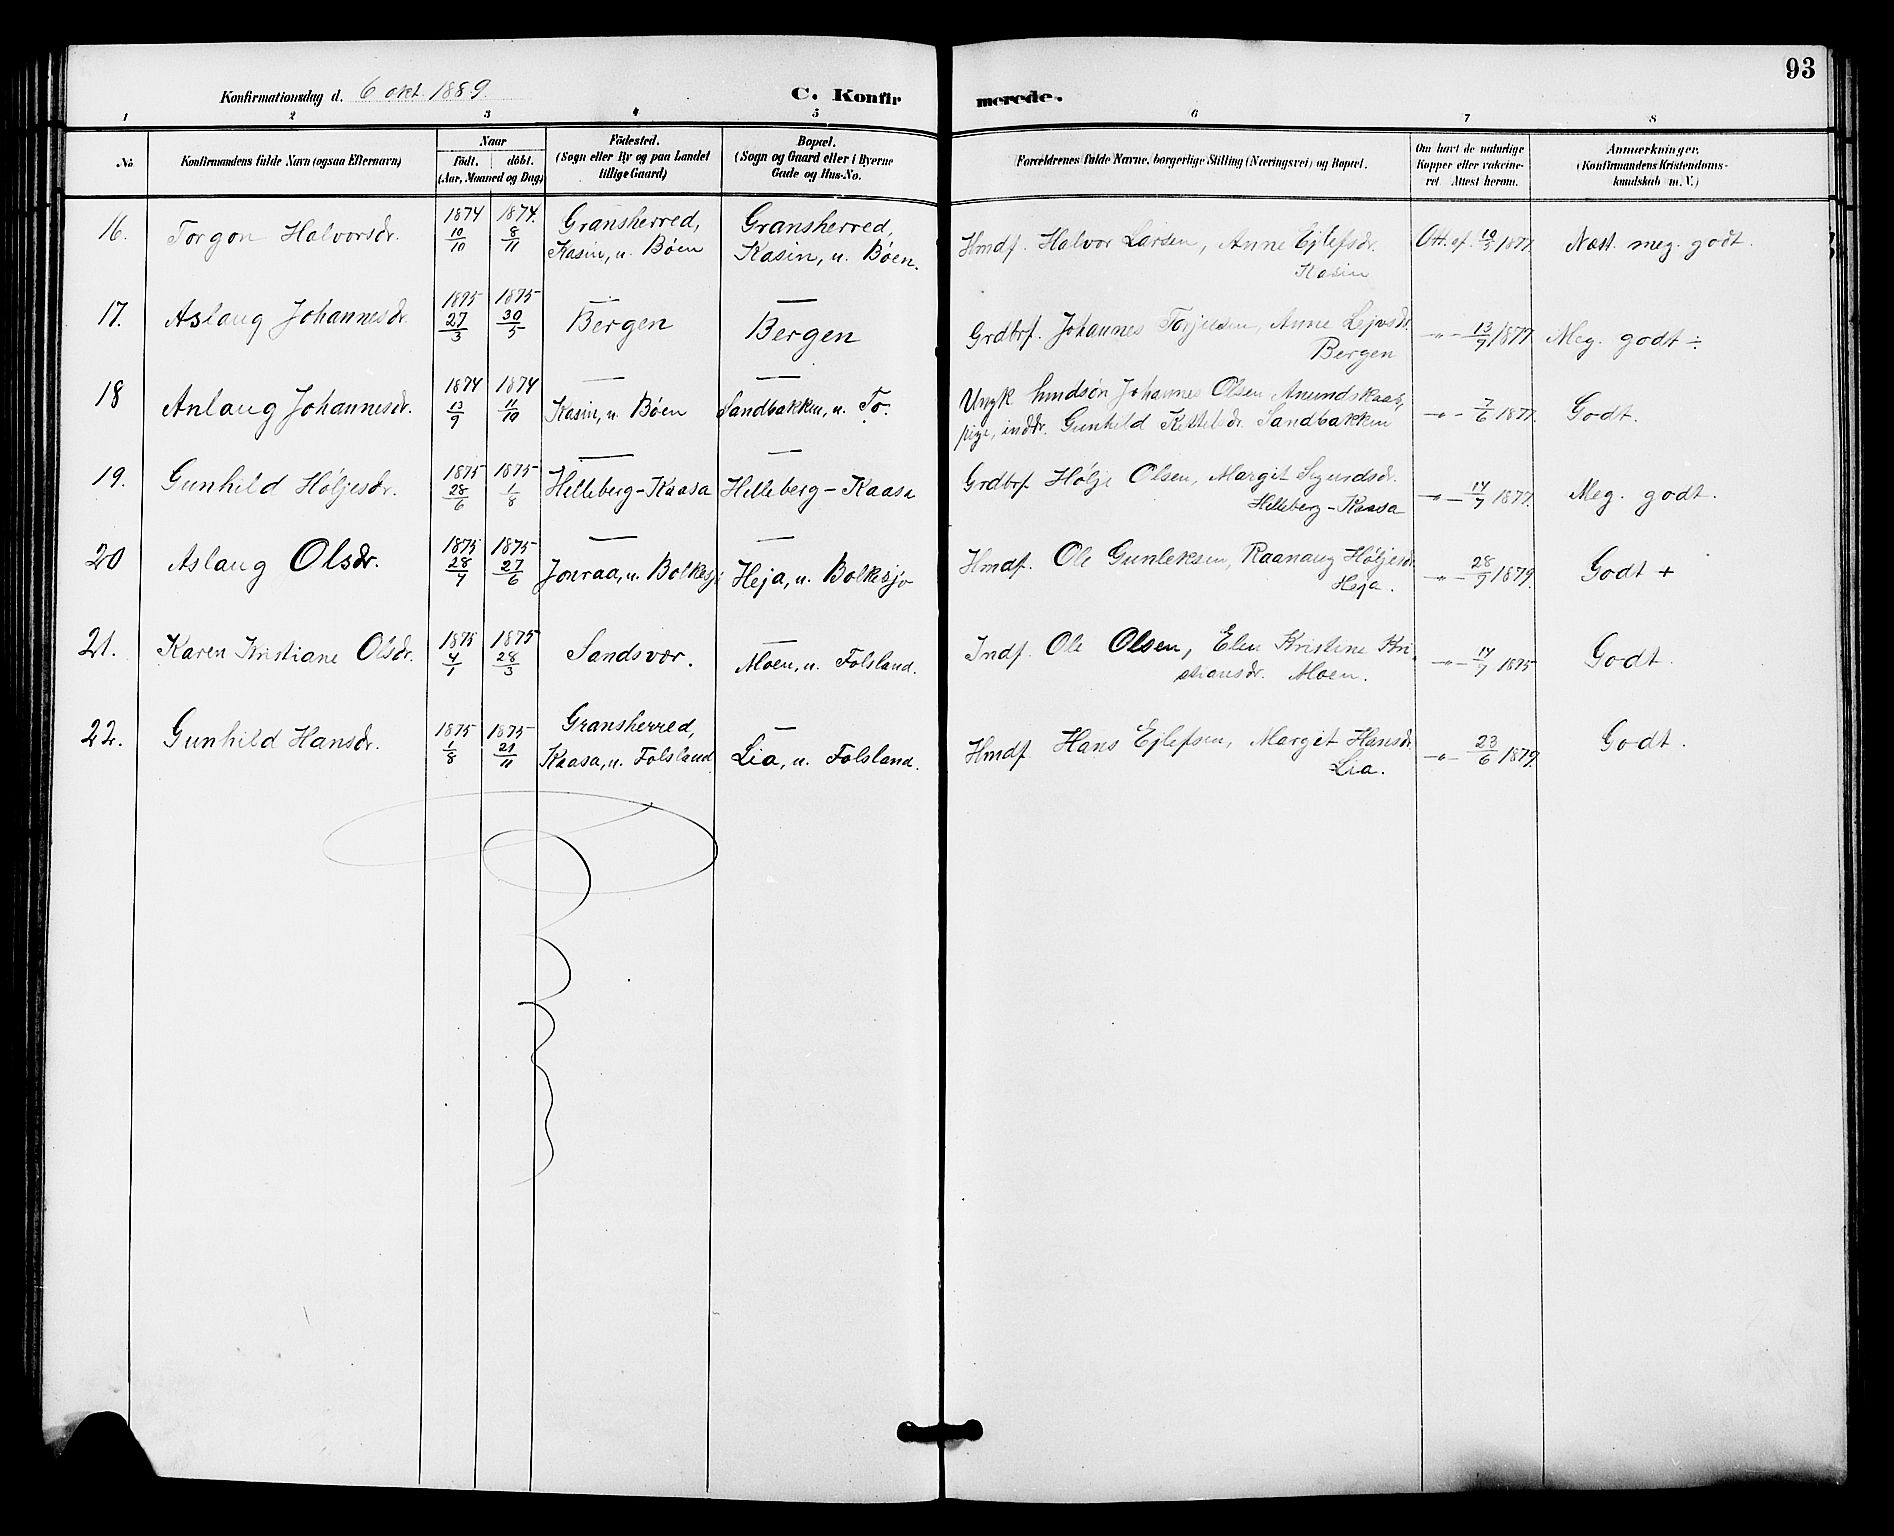 93
Konfirmationsdag d. 6 okt. 1889. C. Konfir merede.
1 2 3 4 5 6 7 8
No. Konfirmandens fulde Navn (ogsaa Efternavn) Naar födt. döbt. (Aar, Maaned og Dag) Födested. (Sogn eller By og paa Landet tillige Gaard) Bopæl. (Sogn og Gaard eller i Byerne Gade og Hus-No. Forældrenes fulde Navne, borgerlige Stilling (Næringsvei) og Bopæl. Om havt de naturlige Kopper eller vakcineret. Attest herom. Anmærkninger. (Konfirmandens Kristendomskundskab m. V.)
16. Torgon Halvorsdr. 1874 10/10 1874. 8/11 Gransherred, Kasin, u. Bøen Gransherred, Kasin, u. Bøen. Hmdf. Halvor Larsen, Anne Ejlefsdr. Kasin Att. af 10/3 1877. Næst. meg. godt.
17. Aslaug Johannesdr. 1895 27/3 1875 30/5 — Bergen — Bergen Grdbrf. Johannes Torjussen, Anne Lejvsdr. Bergen -"- 13/9 1877 Meg. godt ÷
18 Anlaug Johannesdr. 1874 13/9 1874 11/10 — Kasin, u. Bøen — Sandbakken, u. To. Ungk hmdsøn Johannes Olsen Amundskaas, pige, inddr. Gunhild Kittelsdr. Sandbakken -"- 7/6 1877. Godt.
19. Gunhild Høljesdr. 1875 28/6 1875 1/8 — Helleberg-Kaasa — Helleberg-Kaasa Grdbrf Hølje Olsen, Margit Sjursdr. Helleberg-Kaasa -"- 14/7 1877. Meg. godt.
20 Aslaug Olsdr. 1875 28/4 1875 27/6 — Jonraa, u. Bolkesj — Heja, u. Bolkesjo Hmdf. Ole Gunleksen, Raanaug Høljesdr Heja. -"- 28/9 1879. Godt +
21. Karen Kristiane Olsdr. 1875 4/1 1875 28/3 Sandsvær. — Moen, u. Folsland. Indf. Ole Olsen, Elen Kristine Kristiansdr. Moen. -"- 14/7 1875 Godt.
22. Gunhild Hansdr. 1875 1/8 1875 21/11 Gransherred, Kaasa, u. Folsland — Lia, u. Folsland. Hmdf Hans Ejlefsen, Margit Hansdr Lia. -"- 23/6 1879. Godt.